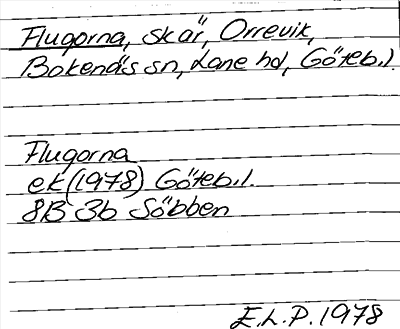 Flugorna, skär, Orrevik,
Bokenäs sn, Lane hd, Göteb.l.
Flugorna
ek (1978) Göteb.l.
8B 3b Söbben
E.L.P. 1978